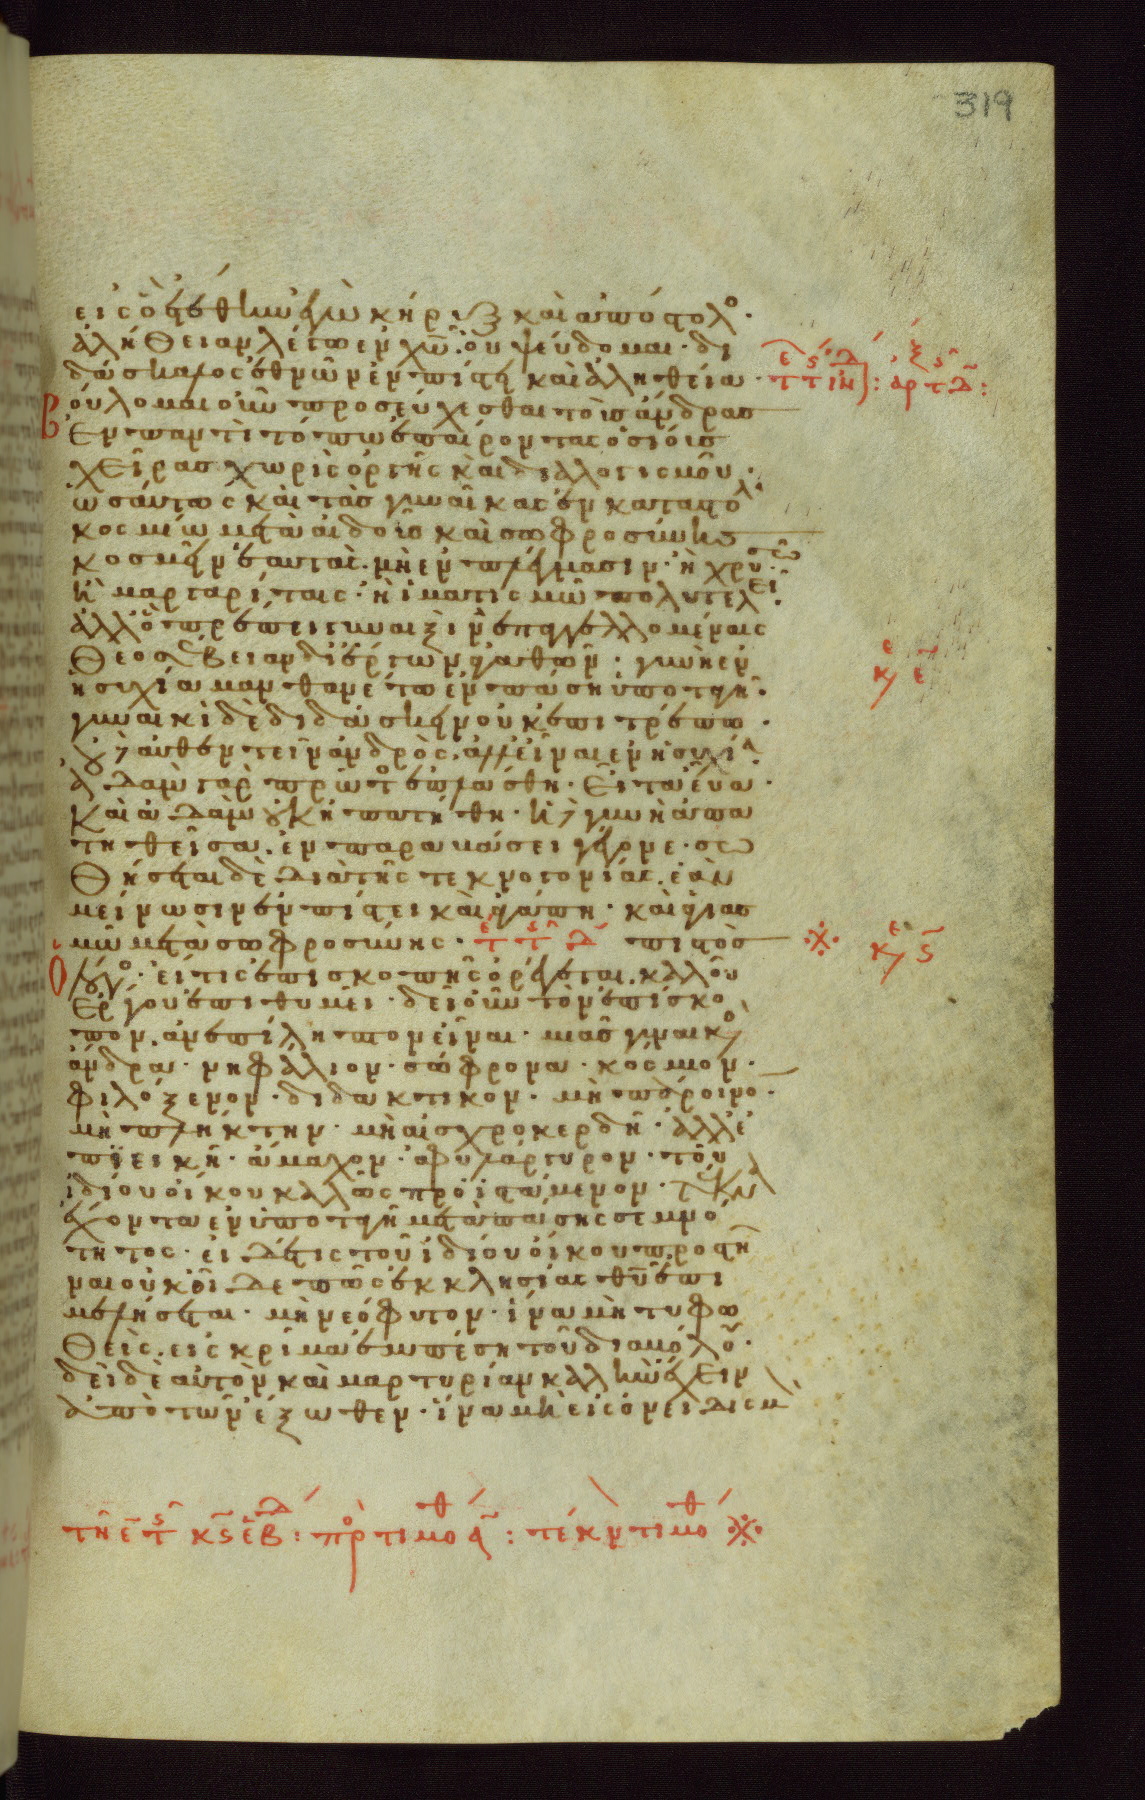 319
εἰς ὃ ἐτέθην ἐγὼ κήρυξ καὶ ἀπόστολο·
ἀλήθειαν λέγω ἐν χω̅· οὐ ψεύδομαι· δι
δάσκαλος ἐθνῶν ἐν πίστει καὶ ἀληθεία·
Βούλομαι οὖν προσεύχεσθαι τοὺς ἄνδρας
ἐν παντὶ τόπω ἐπαίροντας ὁσίους
χεῖρας χωρὶς ὀργῆς καὶ διαλογισμοῦ·
ὡσάυτως καὶ τὰς γυναῖκας ἐν καταστολ
κοσμίω μετὰ αἰδοῦς καὶ σωφροσύνης
κοσμεῖν ἑαυτὰς· μὴ ἐν πλέγμασιν· ἢ χρυσῶ
ἢ μαργαρίταις· ἢ ἱματισμῶ πολυτελεῖ·
ἀλλ' ὃ πρέπει γυναιξὶν ἐπαγγελλομέναις
θεοσέβειαν δι' ἔργων ἀγαθῶν· γυνὴ ἐν
ησυχία μανθανέτω ἐν πάση ὑποταγῆ·
γυναικὶ δὲ διδάσκειν οὐκ ἐπιτρέπω·
οὐδὲ αὐθεντεῖν ἀνδρὸς· ἀλλ' εἶναι ἐν ἡσυχία
ἀδὰμ γὰρ πρῶτο ἐπλάσθη· εἶτα ἔυα·
καὶ ἀδὰμ οὐκ ηπατήθη· ἡ δὲ γυνὴ ἀπα
τηθεῖσα· ἐν παραβάσει γέγονε· σω
θήσεται δὲ διὰ τῆς τεκνογονίας· ἐὰν
μείνωσιν ἐν πίστει καὶ ἀγάπη· καὶ ἁγιασ
μῶ μετὰ σωφροσύνης· πιστὸς
ὁ λόγο· εἴ τις ἐπισκοπῆς ὀρέγεται· καλοῦ
ἔργου ἐπιθυμεῖ· δεῖ οὖν τὸν ἐπίσκο
πον· ἀνεπίληπτον εἶναι· μιᾶς γυναικὸ
ἄνδρα· νηφάλιον· σώφρονα· κόσμιον·
φιλόξενον· διδακτικον· μὴ πάροινο·
μὴ πλήκτην· μὴ αἰσχροκερδῆ· ἀλλ' ἐ
πϊεικῆ· ἄμαχον· ἀφιλάργυρον· τοῦ
ἰδίου οἴκου καλῶς προϊστάμενον· τέκνα
ἔχοντα ἐν ὑποταγῆ μετὰ πάσης σεμνό
τητος· εἰ δέ τις τοῦ ἰδίου οἴκου προστῆ
ναι οὐκ οἶδε πῶς ἐκκλησίας θυ̅ ἐπι
μελήσεται· μὴ νεόφυτον· ἵνα μὴ τυφω
θεὶς· εἰς κρίμα ἐμπέση τοῦ διαβόλου·
δεῖ δὲ αὐτὸν καὶ μαρτυρίαν καλὴν ἔχειν
ἀπὸ τῶν ἔξωθεν· ἵνα μὴ εἰς ὀνειδισμ